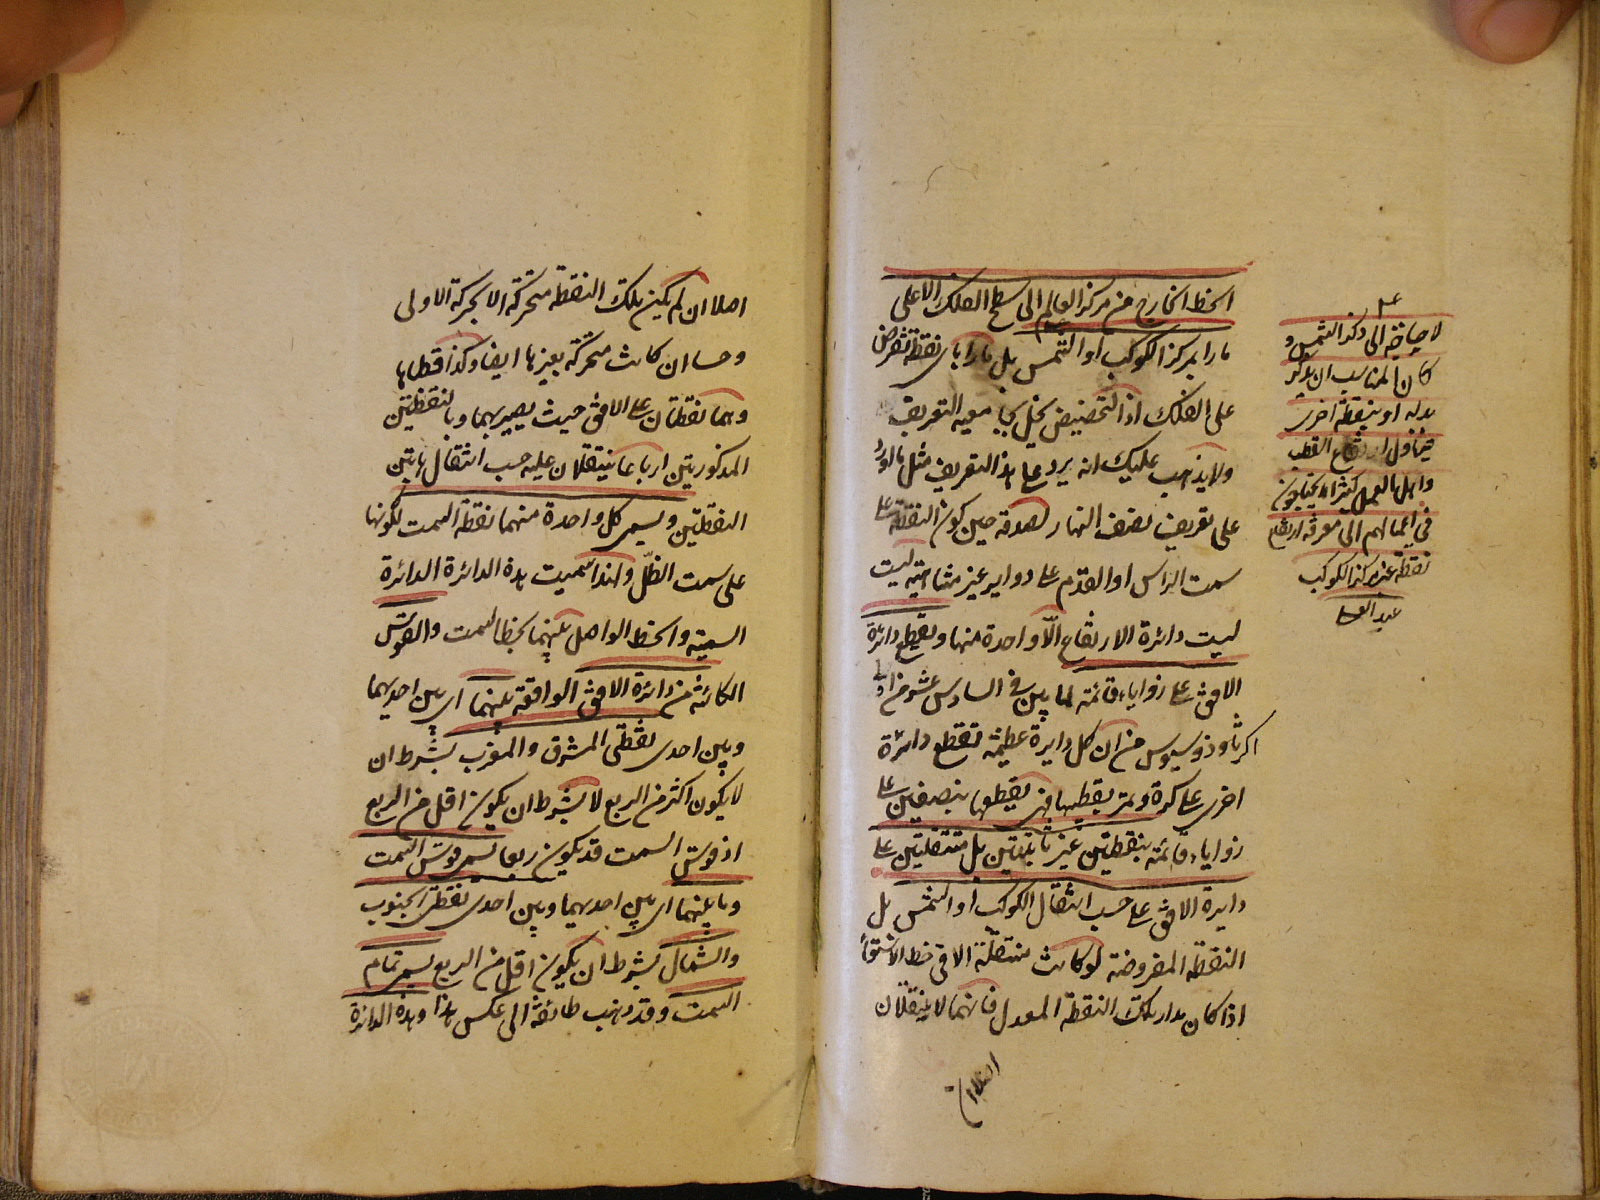 الخط الخارج من مركز العالم الى سطح الفلك الاعلى
مارا بمركز الكوكب او الشمس بل مارا باى نقطة تفرض
على الفلك اذ التخصيص يخل بجامعيه التعريف
ولا يذهب عليك انه يرد على هذا التعريف مثل ما اورد
على تعريف نصف النهار لصدقه حين كون النقطة على
سمت الراس او القدم على دواير غير متناهيه ليست
ليست دائرة الارتفاع الا واحدة منها وتقطع دائرة
الافق على زوايا قائمة لما بين فى السادس عشر من اولى
اكر ثاوذوسيوس من ان كل دايرة عظيمة تقطع دائرة
اخرى على كرة وتمر بقطبيها فهى تقطعها بنصفين على
زوايا قائمة بنقطتين غير ثابتتين بل منتقلتين على
دايرة الافق على حسب انتقال الكوكب او الشمس بل
النقطة المفروضة لو كانت منتقلة الا فى خط الاستواء
اذا كان مدار تلك النقطة المعدل فانهما لا ينتقلان
اصلا ان
لا حاجة الى ذكر الشمس و
كان المناسب ان يذكر
بدله او بنقطة اخرى
ليتناول ارتفاع القطب
واهل العمل كثيرا ما يحتاجون
فى اعمالهم الى معرفة ارتفاع
نقطة غير مركز الكوكب
عبد العلى
اصلا ان لم يكن تلك النقطة متحركة الا بحركة الاولى
وحسا ان كانت متحركة بغيرها ايضا وكذا قطباها
وهما نقطتان على الافق حيث يصير بهما وبالنقطتين
المذكورتين ارباعا ينتقلان عليه حسب انتقال هاتين
النقطتين ويسمى كل واحدة منهما نقطة السمت لكونها
على سمت الظل ولهذا سميت هذه الدائرة الدائرة
السمتية والخط الواصل بينهما بخط السمت والقوس
الكائنة من دائرة الافق الواقعة بينهما اى بين احديهما
وبين احدى نقطتى المشرق والمغرب بشرط ان
لا يكون اكثر من الربع لا بشرط ان يكون اقل من الربع
اذ قوس السمت قد يكون ربعا تسمى قوس السمت
وما بينهما اى بين احديهما وبين احدى نقطتى الجنوب
والشمال بشرط ان يكون اقل من الربع يسمى تمام
السمت وقد ذهب طائفة الى عكس هذا وهذه الدائرة